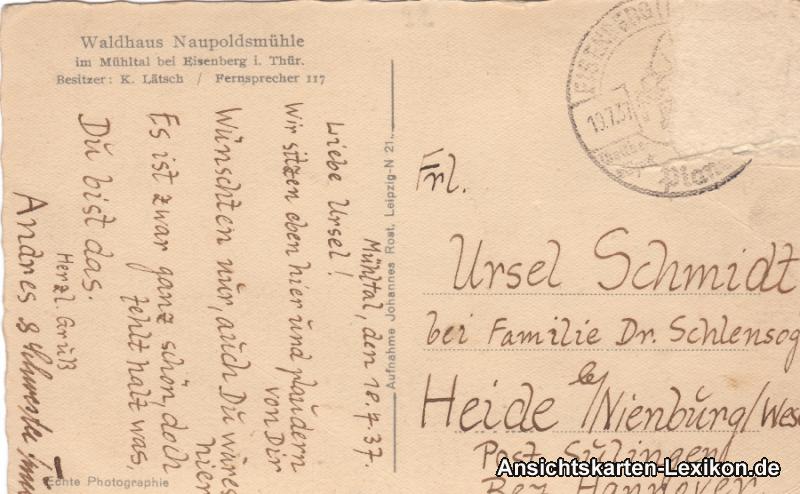 Waldhaus Naupoldsmühle
im Mühltal bei Eisenberg i. Thür.
Besitzer: K. Lätsch / Fernsprecher 117
Mühltal, den 18.7.37.
Liebe Ursel!
Wir sitzen eben hier und plaudern
von Dir
Wünschten nur, auch Du wäres
hier
Es ist zwar ganz schön, doch
fehlt halt was,
Du bist das.
Herzl. Gruß
Andres &
Echte Photographie
Aufnahme Johannes Rost, Leipzig-N 21.
EISENBERG
19.7.37
Frl.
Ursel Schmidt
bei Familie Dr. Schlensog
Heide b/Nienburg/Wese
Post Sulingen
Bez Hannover
Ansichtskarten-Lexikon.de